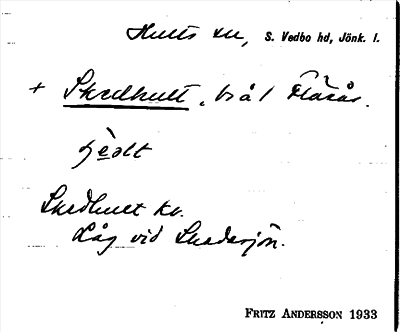 Hults sn, S. Vedbo hd, Jönk. l.
+ Skedhult, bs å / Flåsås.
Skedhult kv.
Låg vid Skedesjön.
FRITZ ANDERSSON 1933